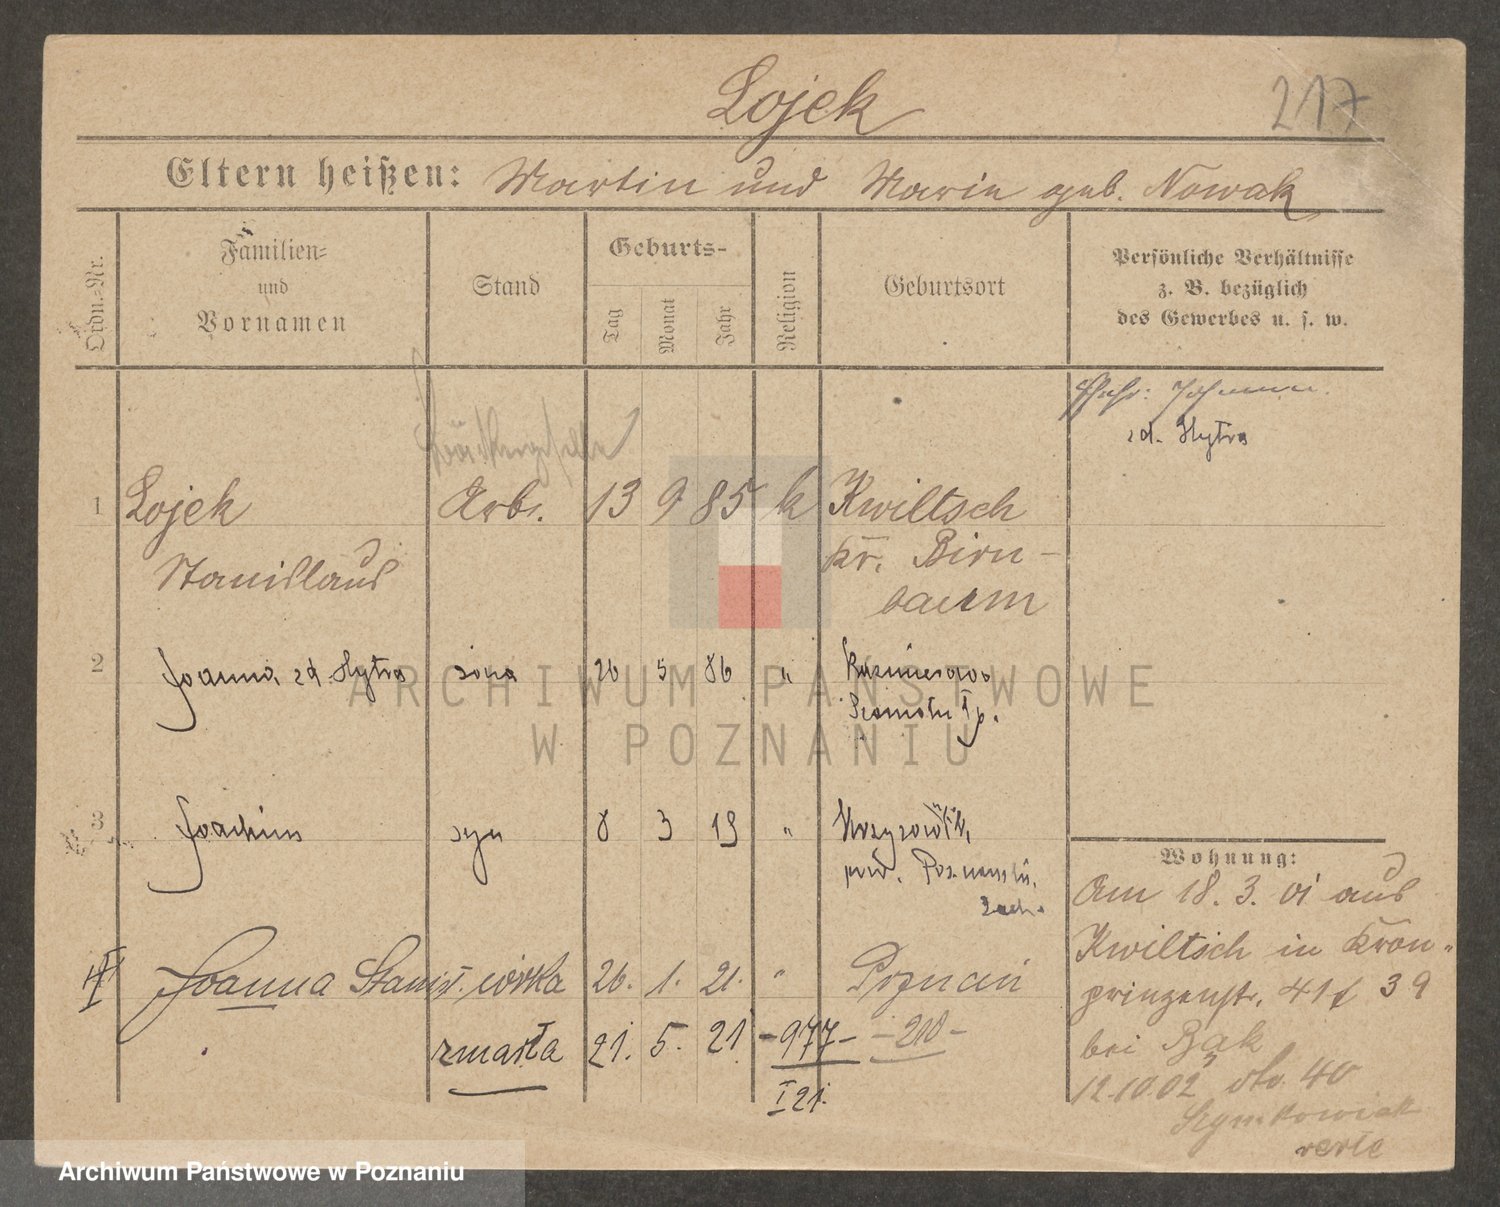 Lojek
217
Eltern heißen: Martin und Marie geb. Nowak
Ordn.-Nr.
Familien-
und
Vornamen
Stand
Geburts-
Tag
Monat
Jahr
Religion
Geburtsort
Persönliche Verhältnisse
z. B. bezüglich
des Gewerbes u. s. w.
zd. Hytra
1 Lojek Arb. 13 9 85 k Kwiltsch
Stanislaus Kr. Birn-
baum
2 Joanna zd. Hytra żona 26 5 86 "
3 Joachim syn 8 3 19 "
pow.
Zach.
Wohnung:
Am 18. 3. 01 aus
Kwiltsch in Kron-
prinzenstr. 41 f 39
bei Bąk
12.10.02 dto. 40
Szymkowiak
verte
Joanna Stanisł. córka 26. 1. 21. " Poznań
zmarła 21. 5. 21 -977- -210-
I 21.
ARCHIWUM PAŃSTWOWE
W POZNANIU
Archiwum Państwowe w Poznaniu